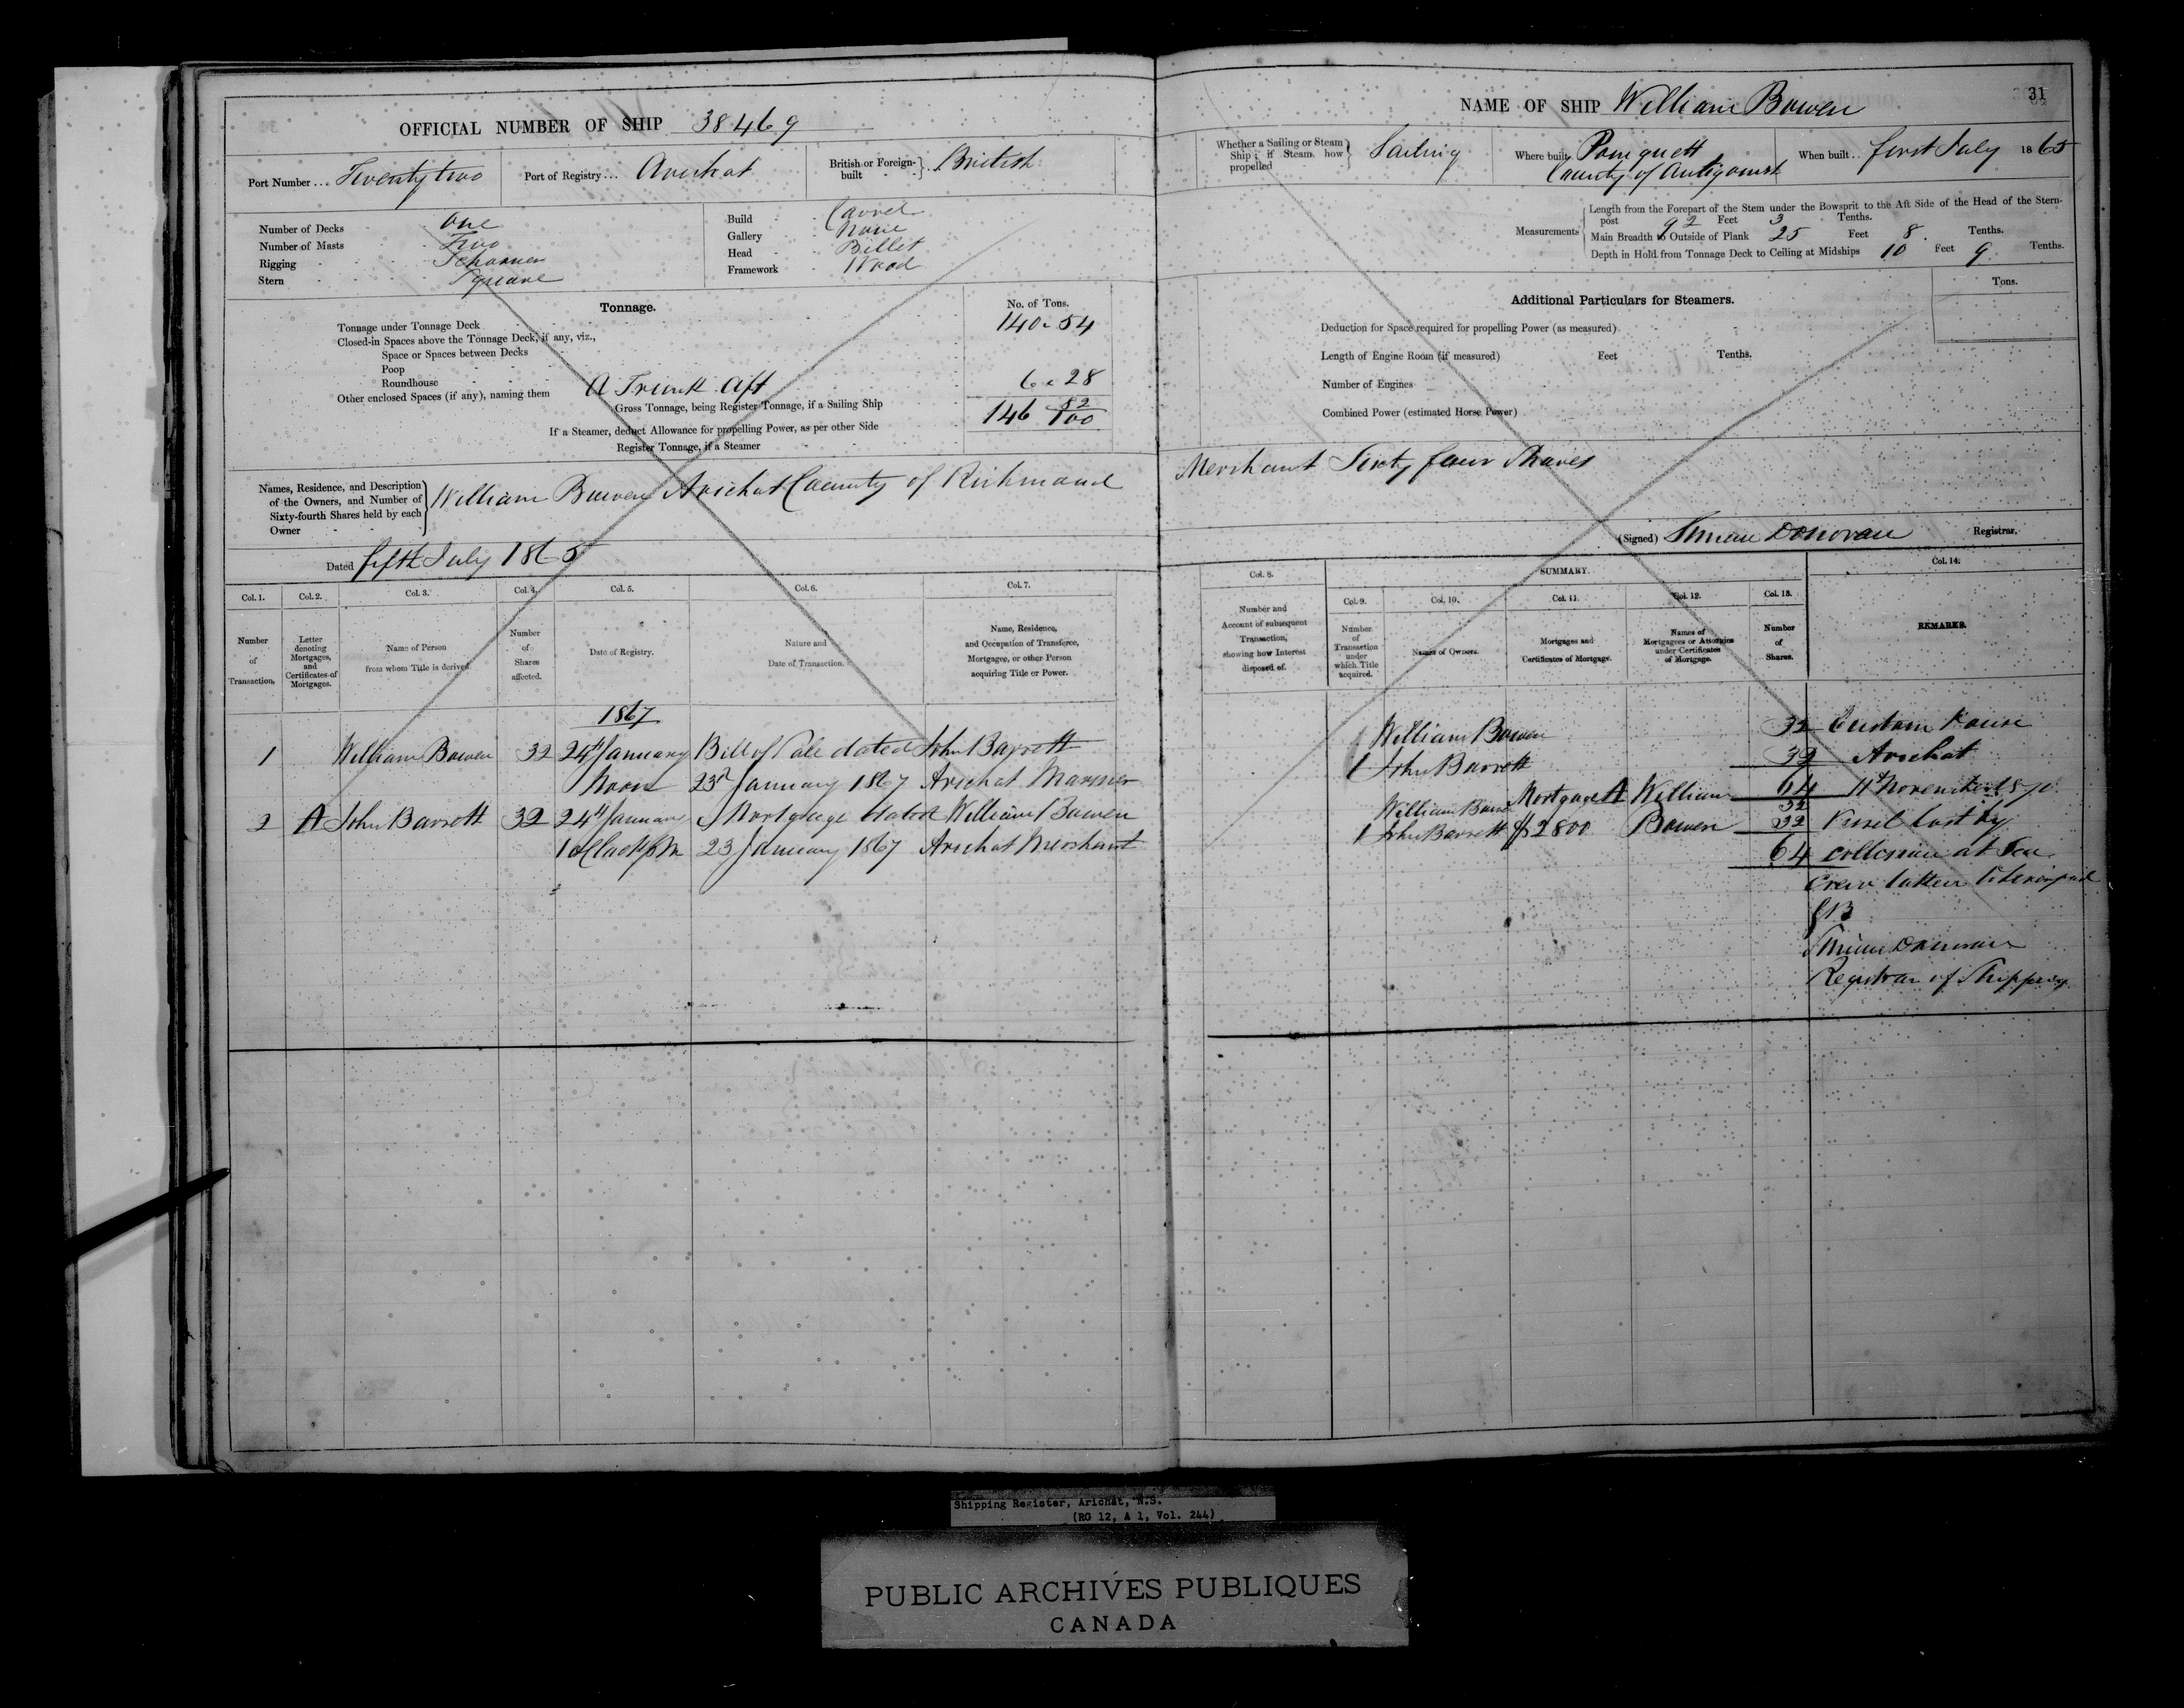 OFFICIAL NUMBER OF SHIP 38469
Port Number... Twenty two
Port of Registry... Arichat
British or Foreign-built British
Number of Decks One
Number of Masts Two
Rigging Schooner
Stern Square
Build Carvel
Gallery None
Head Billet
Framework Wood
Tonnage.
No. of Tons.
Tonnage under Tonnage Deck 140.54
Closed-in Spaces above the Tonnage Deck, if any, viz.,
Space or Spaces between Decks
Poop
Roundhouse
Other enclosed Spaces (if any), naming them A Trunk Aft 6.28
Gross Tonnage, being Register Tonnage, if a Sailing Ship 146 82/100
If a Steamer, deduct Allowance for propelling Power, as per other Side
Register Tonnage, if a Steamer
Names, Residence, and Description
of the Owners, and Number of
Sixty-fourth Shares held by each
Owner
William Bowen Arichat County of Richmond
Dated fifth July 1865
Col. 1. Col. 2. Col. 3. Col. 4. Col. 5. Col. 6. Col. 7.
Number of Transaction.
Letter denoting Mortgages, and Certificates of Mortgages.
Name of Person from whom Title is derived.
Number of Shares affected.
Date of Registry.
Nature and Date of Transaction.
Name, Residence, and Occupation of Transferee, Mortgagee, or other Person acquiring Title or Power.
1867
1 William Bowen 32 24th January Bill of Sale dated John Barrett
Noon 23d January 1867 Arichat Mariner
2 A John Barrett 32 24th January Mortgage dated William Bowen
1 oClock PM 23 January 1867 Arichat Merchant
31
NAME OF SHIP William Bowen
Whether a Sailing or Steam Ship; if Steam how propelled Sailing
Where built Pomquett
County of Antigonish
When built.. first July 1865
Measurements
Length from the Forepart of the Stem under the Bowsprit to the Aft Side of the Head of the Stern-
post 92 Feet 3 Tenths.
Main Breadth to Outside of Plank 25 Feet 8 Tenths.
Depth in Hold from Tonnage Deck to Ceiling at Midships 10 Feet 9 Tenths.
Additional Particulars for Steamers.
Tons.
Deduction for Space required for propelling Power (as measured)
Length of Engine Room (if measured) Feet Tenths.
Number of Engines
Combined Power (estimated Horse Power)
Merchant Sixty four Shares
(Signed) Simeon Donovan Registrar.
Col. 8. SUMMARY. Col. 14.
Col. 9. Col. 10. Col. 11. Col. 12. Col. 13.
Number and Account of subsequent Transaction, showing how Interest disposed of.
Number of Transaction under which Title acquired.
Names of Owners.
Mortgages and Certificates of Mortgage.
Names of Mortgagees or Attornies under Certificates of Mortgage.
Number of Shares.
REMARKS.
William Bowen 32 Custom House
1 John Barrett 32 Arichat
64 11th November 1870
William Bowen Mortgage A William 32
1 John Barrett $2800 Bowen 32 Vessel lost by
64 collision at Sea
Crew
Simeon Donovan
Registrar of Shipping
Shipping Register, Arichat, N.S.
(RG 12, A 1, Vol. 244)
PUBLIC ARCHIVES PUBLIQUES
CANADA